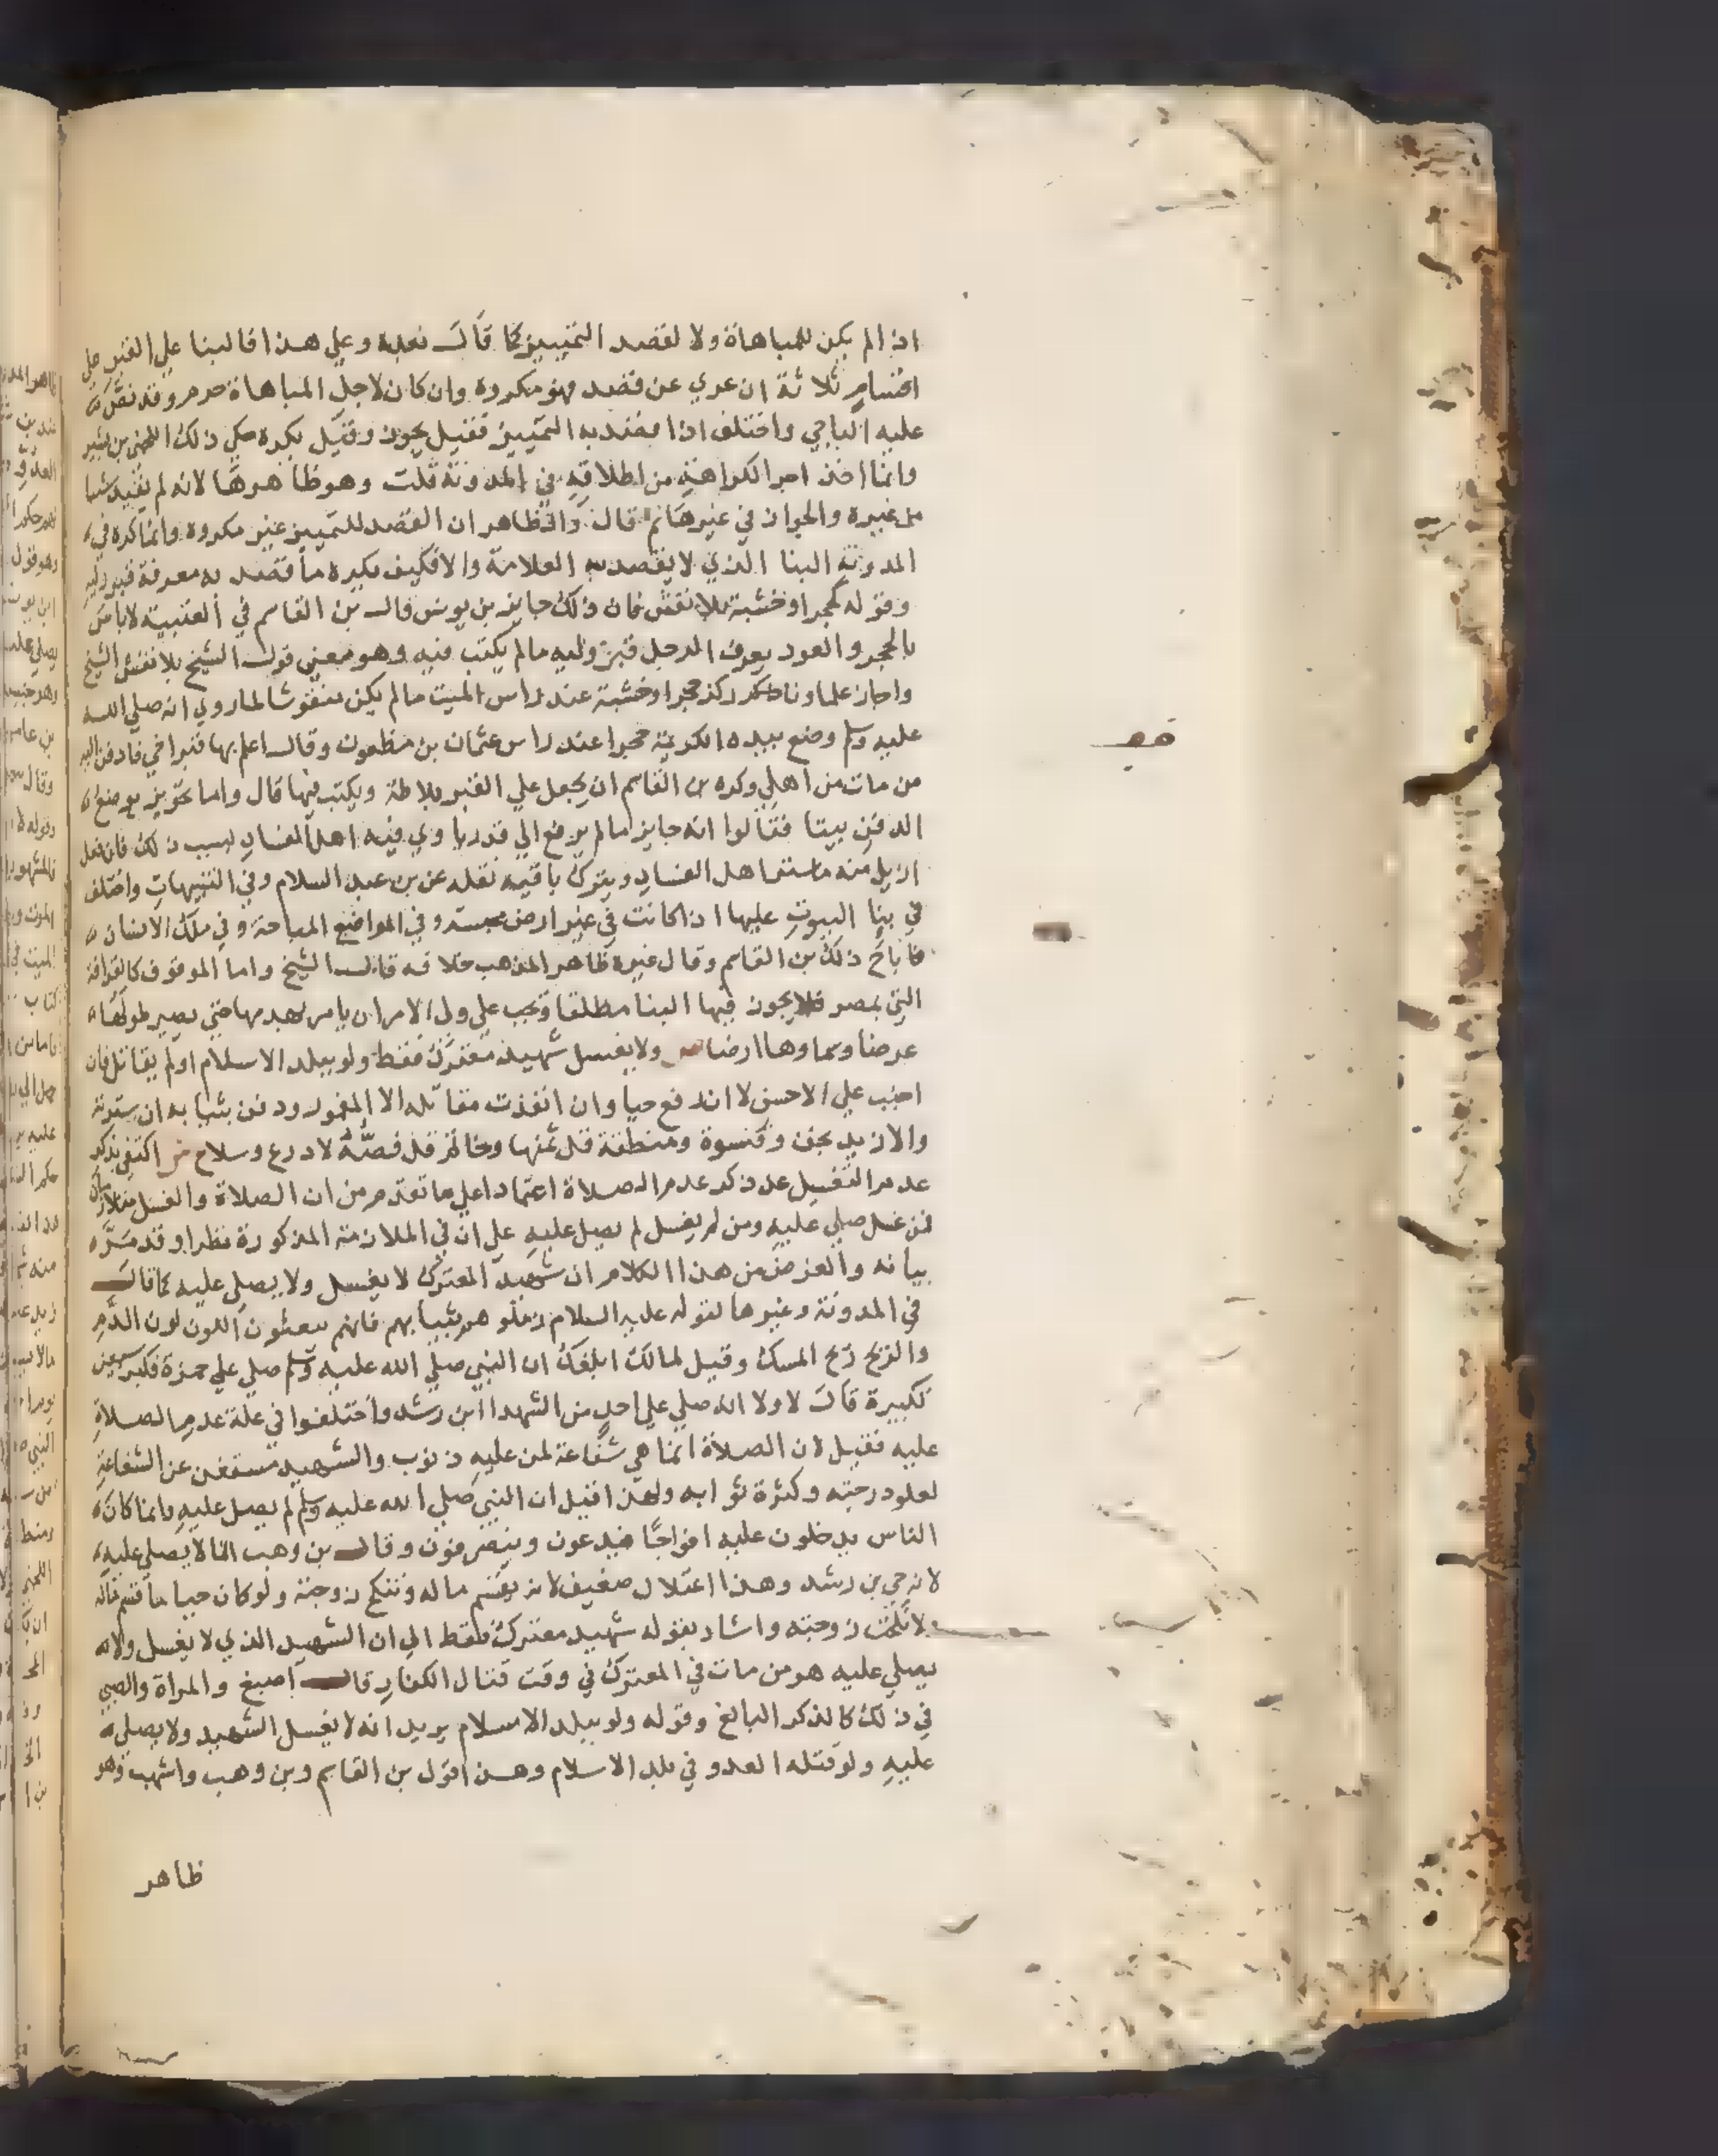 اذا لم يكن للمباهاة ولا لقصد التمييز كما قال بعده وعلي هذا فالبنا علي القبر علي
اقسام ثلاثة ان عري عن قصد فهو مكروه وان كان لاجل المباهاة حرم وقد نص
عليه الباجي واختلف اذا قصد به التمييز فقيل يجوز وقيل يكره حكي ذلك اللخمي بن بشير
وانما اخذ اجر الكراهة من اطلاقه في المدونة قلت وهو ظاهرها لانه لم يقيد شيا
من غيره والجواز في غيرها ثم قال والظاهر ان القصد للتمييز غير مكروه وانما كره في
المدونة البنا الذي لا يقصد به العلامة والا فكيف يكره ما قصد به معرفة قبر وليه
وقوله كحجر او خشبة بلا نقش فان ذلك جايز بن يونس قال بن القاسم في العتبية لا باس
بالحجر والعود يعرف الرجل قبر وليه ما لم يكتب فيه وهو معني قول الشيخ بلا نقش الشيخ
واجاز علماونا ركز حجر او خشبة عند راس الميت ما لم يكن منقوشا لما روي انه صلي الله
عليه وسلم وضع بيده الكريمة حجرا عند راس عثمان بن مظعون وقال اعلم بها قبر اخي فادفن اليه
من مات من اهلي وكره بن القاسم ان يجعل علي القبر بلاطة ويكتب فيها قال واما تحويز موضع
الدفن ببنا فقالوا انه جايز ما لم يرفع الي قدر ياوي فيه اهل الفساد بسبب ذلك فان فعل
ازيل منه ما يستر اهل الفساد ويترك باقيه نقله عن بن عبد السلام وفي التنبيهات واختلف
في بنا البيوت عليها اذا كانت في غير ارض محبسة وفي المواضع المباحة وفي ملك الانسان
فاباح ذلك بن القاسم وقال غيره ظاهر المذهب خلافه قال الشيخ واما الموقوف كالقرافة
التي بمصر فلا يجوز فيها البنا مطلقا ويجب علي ولي الامر ان يامر بهدمها حتي يصير طولها
عرضا وسماوها ارضا ص ولا يغسل شهيد معترك فقط ولو ببلد الاسلام او لم يقاتل وان
اجنب علي الاحسن لا ان رفع حيا وان انفذت مقاتله الا المغمور ودفن بثيابه ان سترته
والا زيد بخف وقلنسوة ومنطقة قل ثمنها وخاتم قل فصه لا درع وسلاح ش اكتفي بذكر
عدم التغسيل عن ذكر عدم الصلاة اعتمادا علي ما تقدم من ان الصلاة والغسل متلازمان
فمن غسل صلي عليه ومن لم يغسل لم يصل عليه علي ان في الملازمة المذكورة نظرا وقد مر
بيانه والغرض من هذا الكلام ان شهيد المعترك لا يغسل ولا يصلي عليه كما قال
في المدونة وغيرها لقوله عليه السلام زملوهم بثيابهم فانهم يبعثون اللون لون الدم
والريح ريح المسك وقيل لمالك ابلغك ان النبي صلي الله عليه وسلم صلي علي حمزة فكبر سبعين
تكبيرة قال لا ولا انه صلي علي احد من الشهدا ابن رشد واختلفوا في علة عدم الصلاة
عليه فقيل لان الصلاة انما هي شفاعة لمن عليه ذنوب والشهيد مستغن عن الشفاعة
لعلو درجته وكثرة ثوابه ولهذا قيل ان النبي صلي الله عليه وسلم لم يصل عليه وانما كان
الناس يدخلون عليه افواجا فيدعون وينصرفون وقال بن وهب انما لا يصلي عليه
لانه حي بن رشد وهذا اعتلال ضعيف لانه يقسم ماله وتنكح زوجته ولو كان حيا ما قسم ماله
ولا نكحت زوجته واشار بقوله شهيد معترك فقط الي ان الشهيد الذي لا يغسل ولا
يصلي عليه هو من مات في المعترك في وقت قتال الكفار قال اصبغ والمراة والصبي
في ذلك كالذكر البالغ وقوله ولو ببلد الاسلام يريد انه لا يغسل الشهيد ولا يصلي
عليه ولو قتله العدو في بلد الاسلام وهذا قول بن القاسم وبن وهب واشهب وهو
ظاهر